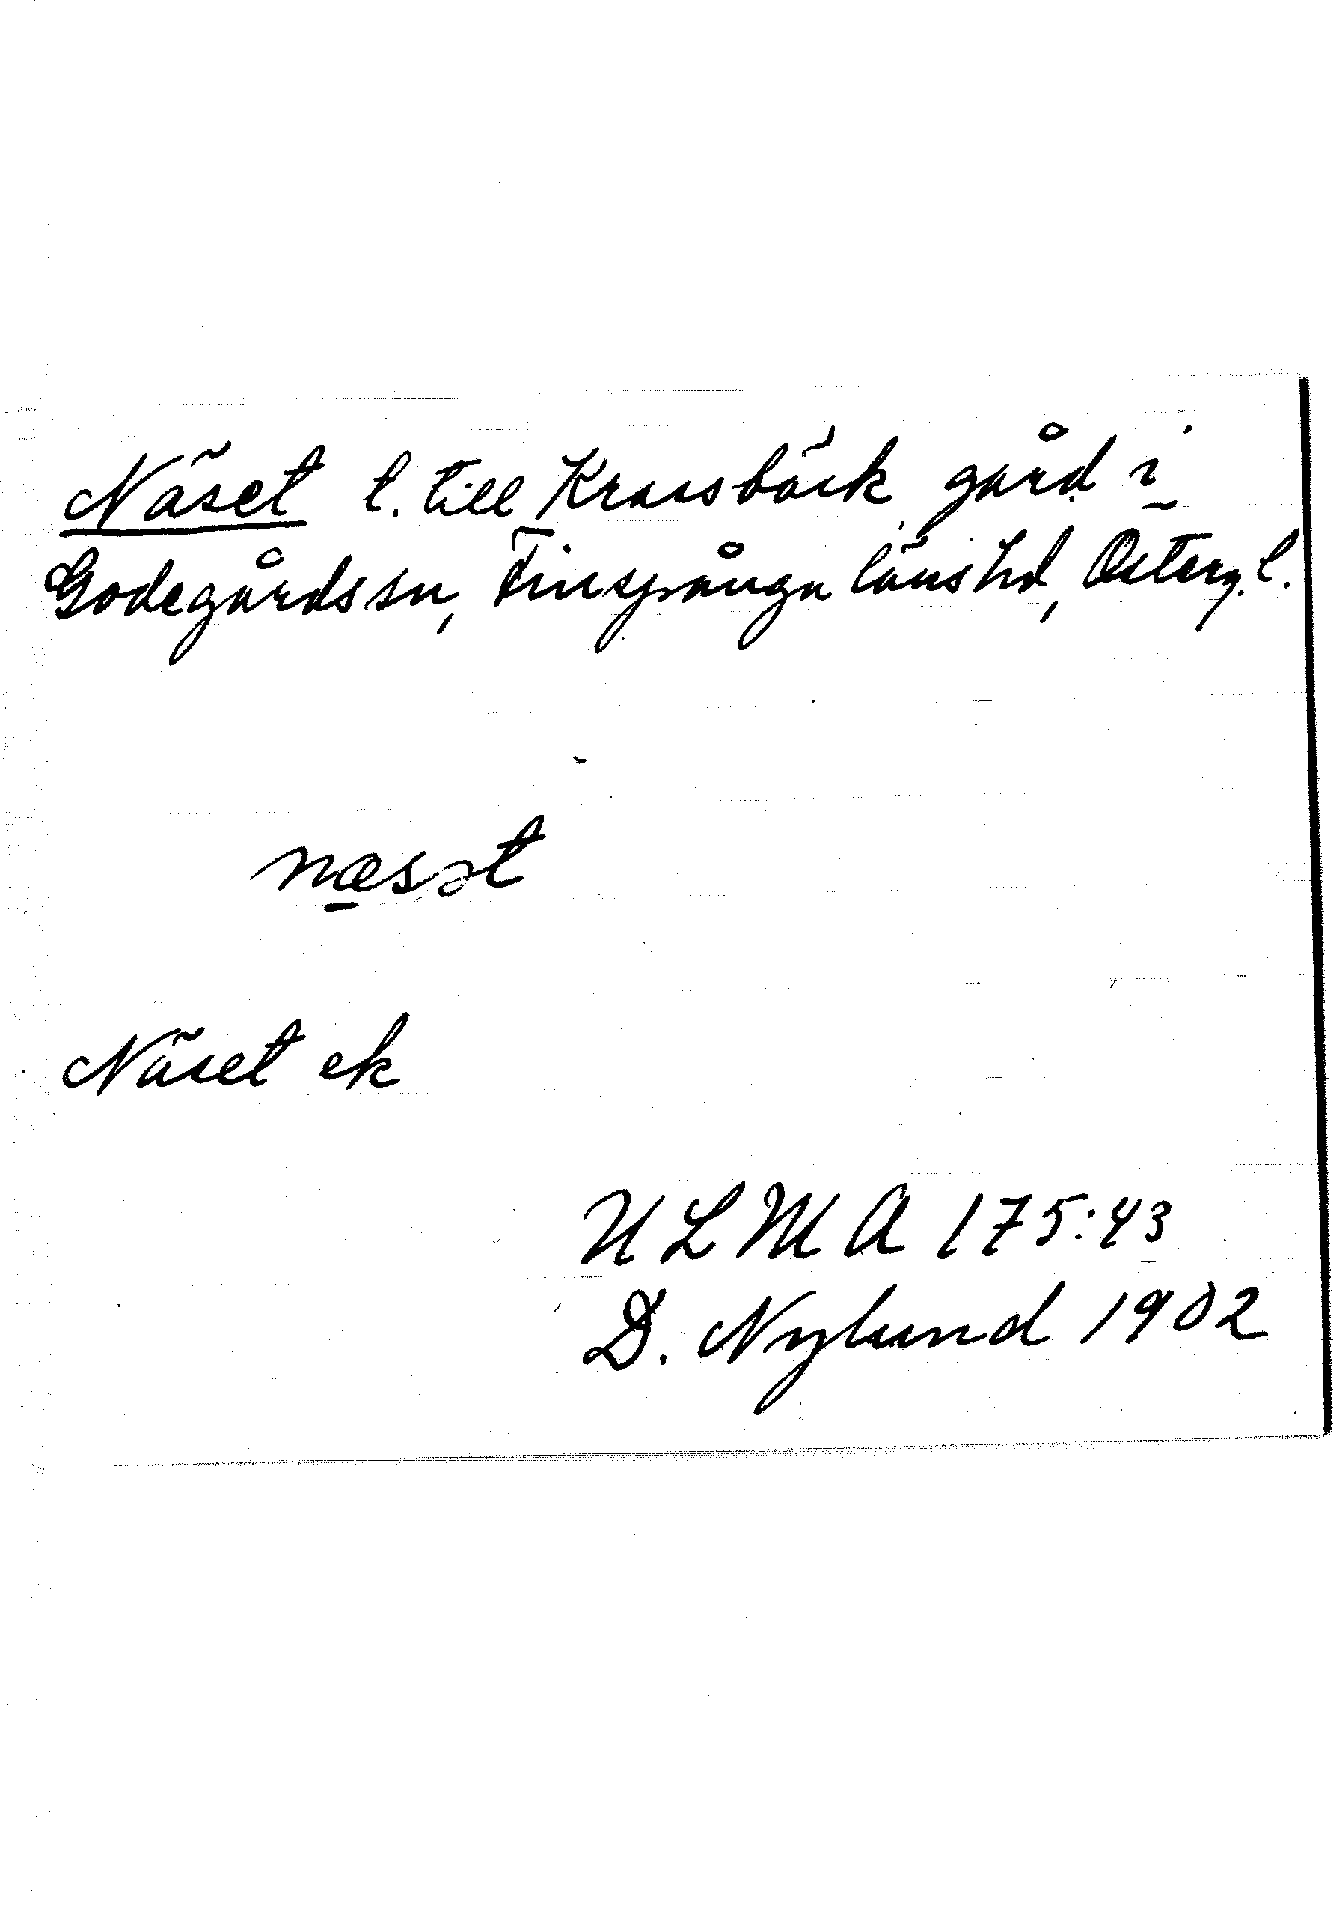 Näset l. till Kransbäck gård i
Godegårds sn, Finspånga läns hd, Österg. l.
næsət
Näset ek
ULMA 175:43
D. Nylund 1902